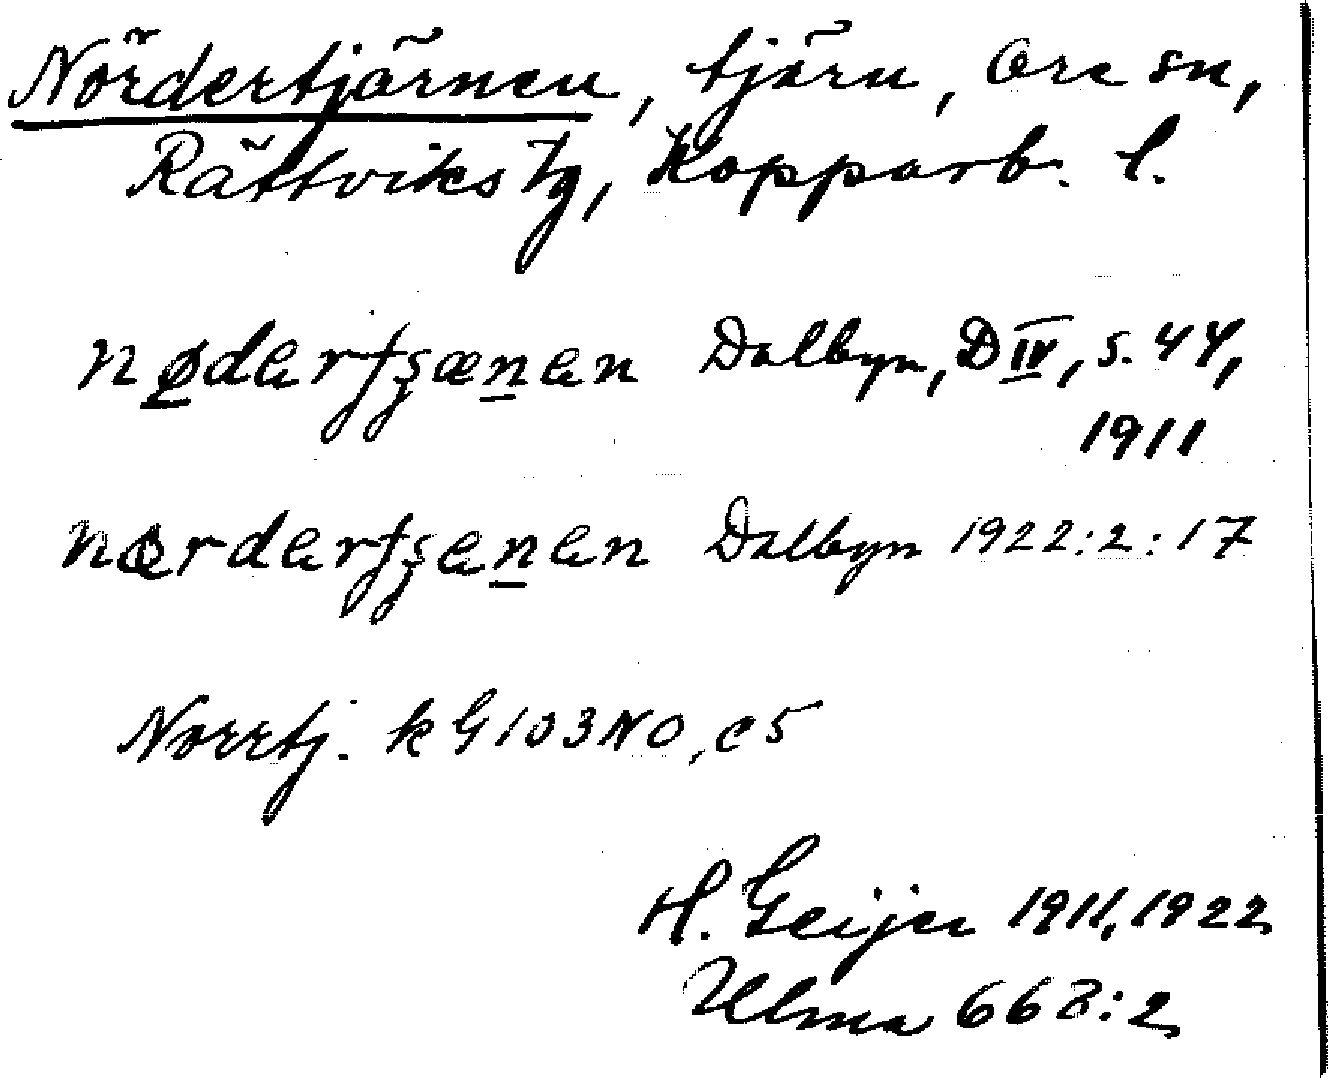 Nördertjärnen, tjärn, Ore sn,
Rättviks tg, Kopparb. l.
Dalbyn, D IV, s. 44,
1911
Dalbyn 1922:2:17
Norrtj. k G 103 NO, c 5
H. Geijer 1911, 1922
Ulma 668:2